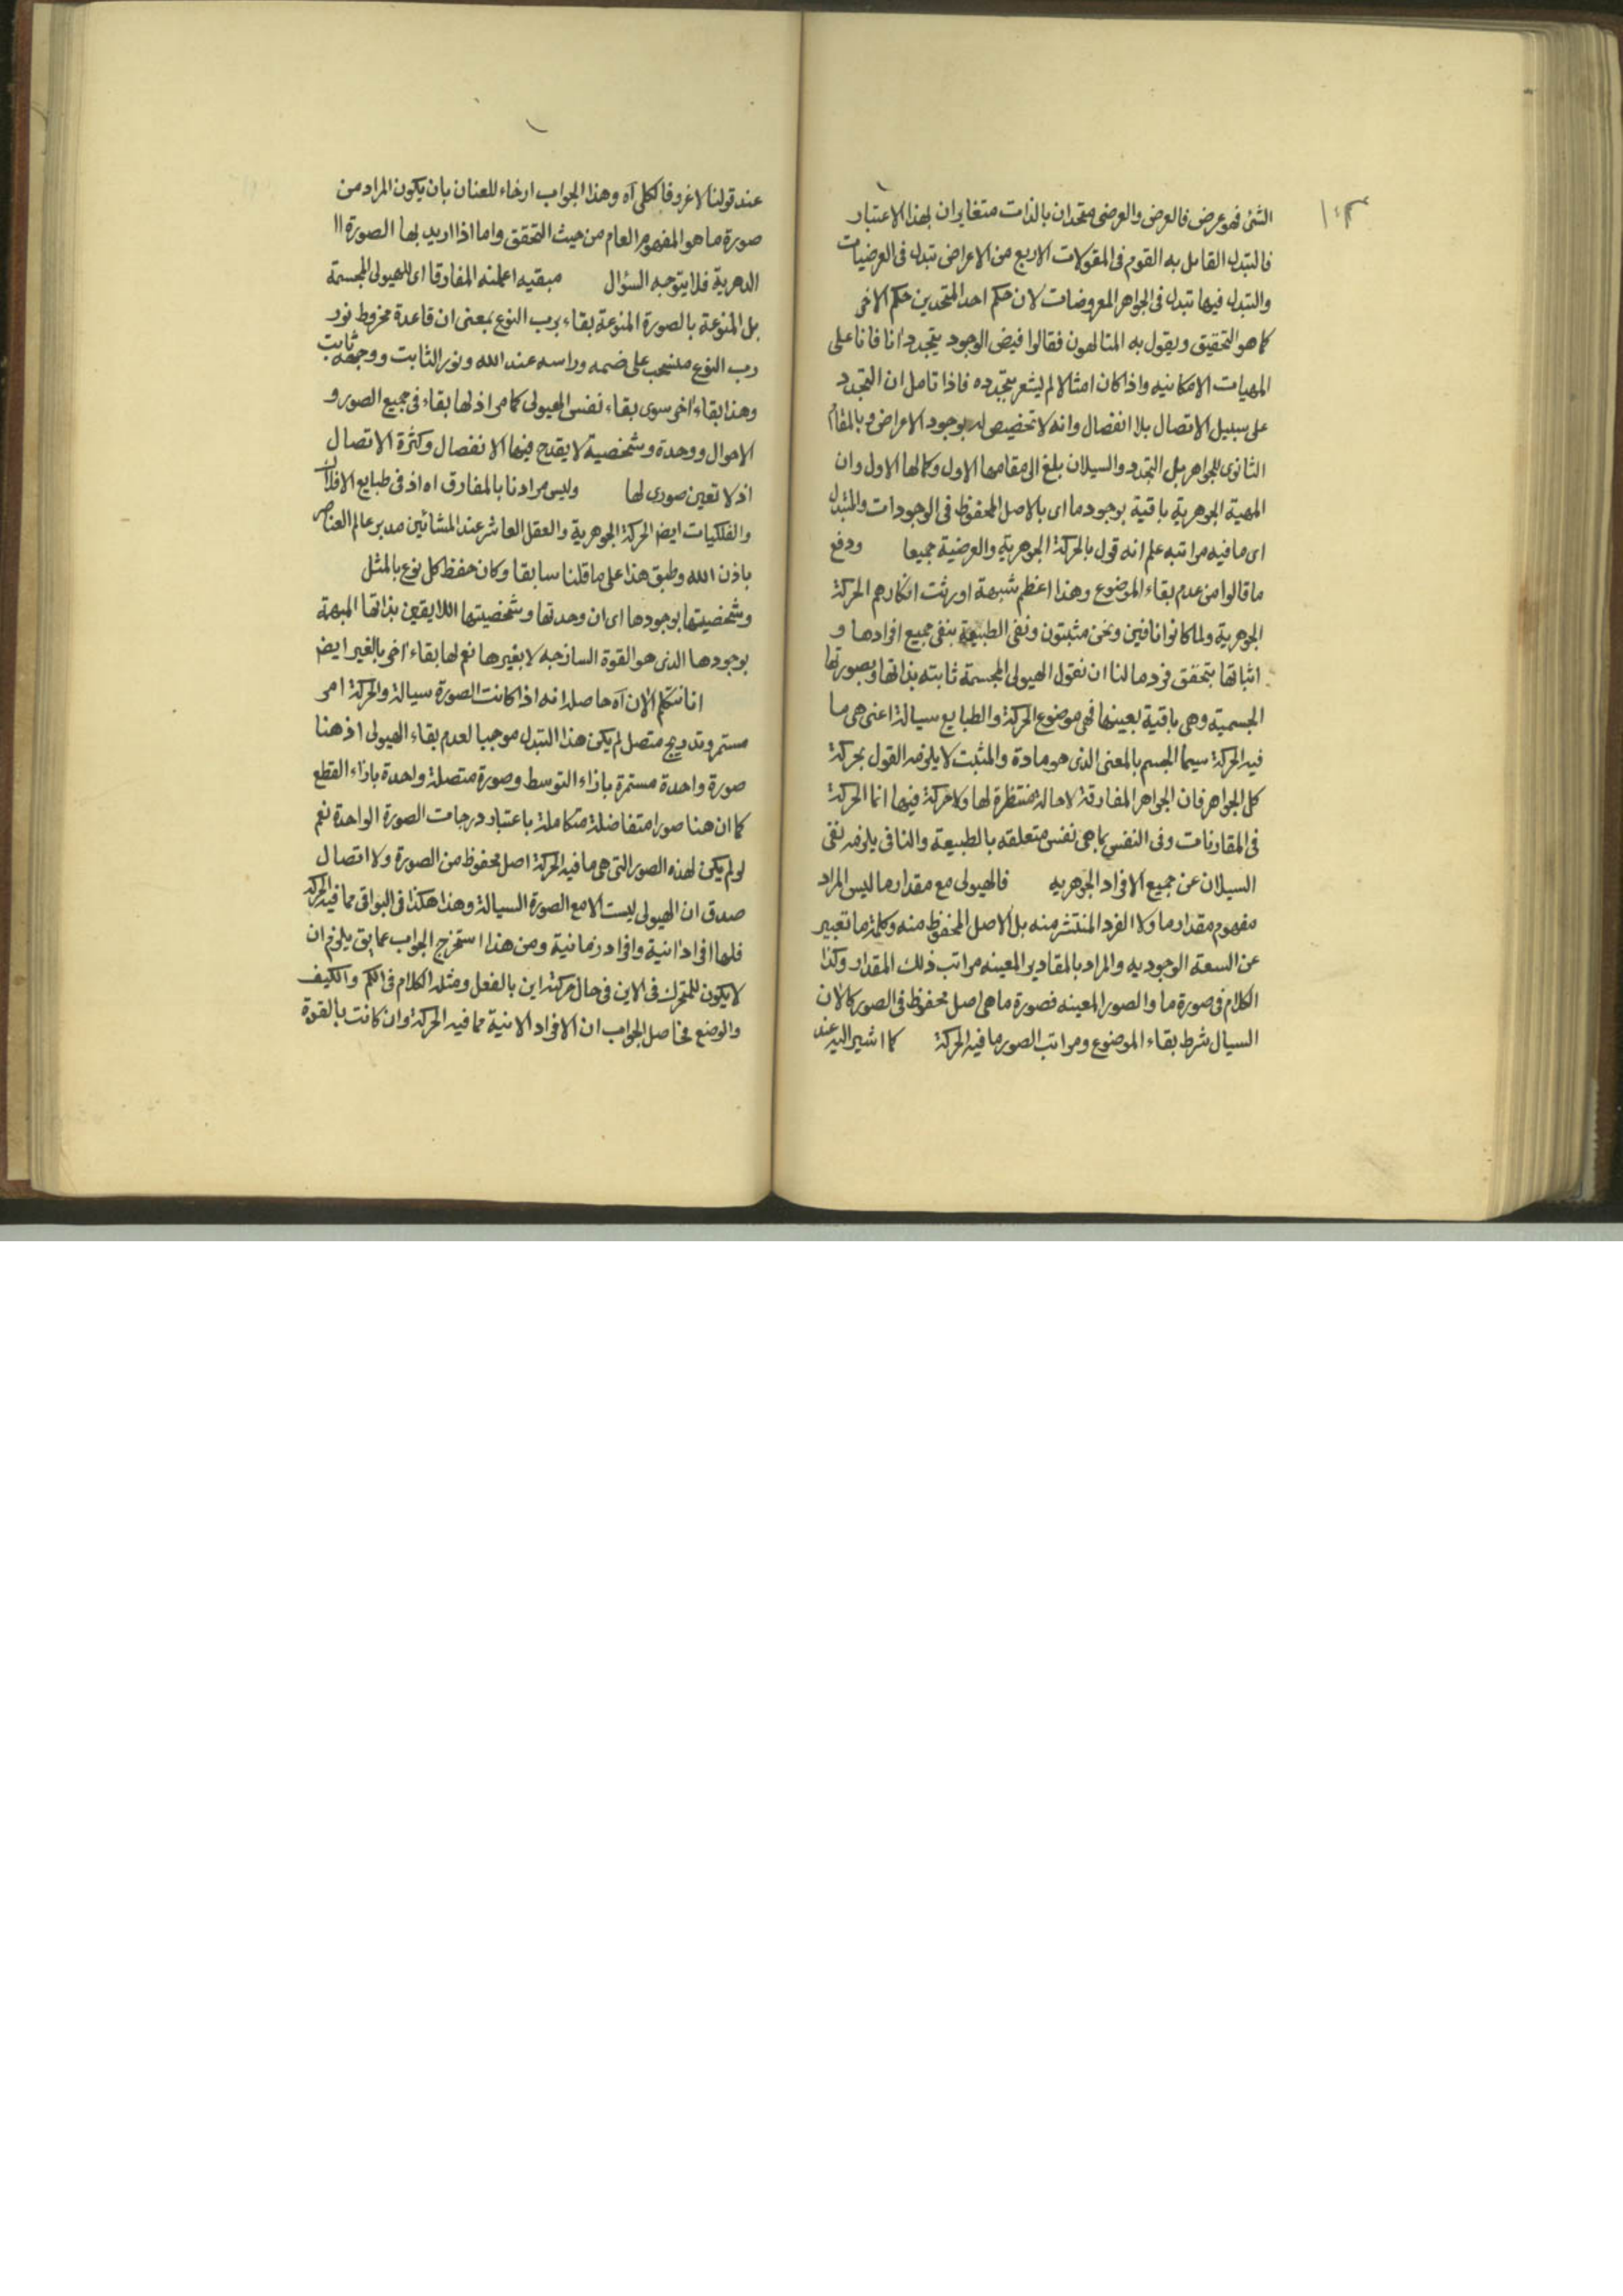 ١٠٣
الشئ فهو عرض فالعرض والعرضى متحدان بالذات متغايران بهذا الاعتبار
فالتبدل القايل به القوم فى المقولات الاربع من الاعراض تبدل فى العرضيات
والتبدل فيها تبدل فى الجواهر المعروضات لان حكم احد المتحدين حكم الاخر
كما هو التحقيق ويقول به المتالهون فقالوا فيض الوجود يتجدد انا فانا على
المهيات الامكانيه واذا كان امثالا لم يشعر بتجدده فاذا تامل ان التجدد
على سبيل الاتصال بلا انفصال وانه لا تخصيص له بوجود الاعراض و بالمقام
الثانوى للجواهر بل التجدد والسيلان بلغ الى مقامها الاول وكمالها الاول وان
المهية الجوهرية باقية بوجود ما اى بالاصل المحفوظ فى الوجودات والمتبدل
اى ما فيه مراتبه علم انه قول بالحركة الجوهرية والعرضية جميعا ودفع
ما قالوا من عدم بقاء الموضوع وهذا اعظم شبهة اورثت انكارهم الحركة
الجوهرية ولما كانوا نافين ونحن مثبتون ونفى الطبيعة بنفى جميع افرادها و
اثباتها بتحقق فرد ما لنا ان نقول الهيولى المجسمة ثابته بذاتها وبصورتها
الجسمية وهى باقية بعينها فهى موضوع الحركة والطبايع سيالة اعنى هى ما
فيه الحركة سيما الجسم بالمعنى الذى هو مادة والمثبت لا يلزمه القول بحركة
كل الجواهر فان الجواهر المفارقة لا حالة منتظرة لها ولا حركة فيها انما الحركة
فى المقارنات وفى النفس بما هى نفس متعلقه بالطبيعة والنافى يلزمه نفى
السيلان عن جميع الافراد الجوهريه فالهيولى مع مقدار ما ليس المراد
مفهوم مقدار ما ولا الفرد المنتشر منه بل الاصل المحفوظ منه وكلمة ما تعبير
عن السعة الوجوديه والمراد بالمقادير المعينه مراتب ذلك المقدار وكذا
الكلام فى صورة ما والصور المعينه فصورة ما هى اصل محفوظ فى الصور كالان
السيال شرط بقاء الموضوع ومراتب الصور ما فيه الحركة كما اشير اليه عند
عند قولنا لا غرو فالكلى آه وهذا الجواب ارخاء للعنان بان يكون المراد من
صورة ما هو المفهوم العام من حيث التحقق واما اذا اريد بها الصورة اا
الدهرية فلا يتوجه السؤال مبقيه اعلمنه المفارقا اى للهيولى المجسمة
بل المنوعة بالصورة المنوعة بقاء برب النوع بمعنى ان قاعدة مخروط نور
رب النوع منسحب على ضمه وراسه عند الله ونور الثابت ووجهه ثابت
وهذا بقاء اخر سوى بقاء نفس الهيولى كما مر اذ لها بقاء فى جميع الصور و
الاحوال ووحدة وشخصية لا يقدح فيها الانفصال وكثرة الاتصال
اذ لا تعين صورى لها وليس مرادنا بالمفارق اه اذ فى طبايع الافلاك
والفلكيات ايض الحركة الجوهرية والعقل العاشر عند المشائين مدبر عالم العناصر
باذن الله وطبق هذا على ما قلنا سابقا وكان حفظ كل نوع بالمثل
وشخصيتها بوجودها اى ان وحدتها وشخصيتها اللايقين بذاتها المبهمة
بوجودها الذى هو القوة الساذجه لا بغيرها نعم لها بقاء اخر بالغير ايض
انا نتكلم الان آه حاصله انه اذا كانت الصورة سيالة والحركة امر
مستمر وتدريج متصل لم يكن هذا التبدل موجبا لعدم بقاء الهيولى اذ هنا
صورة واحدة مستمرة بازاء التوسط وصورة متصلة واحدة بازاء القطع
كما ان هنا صورا متفاضلة متكاملة باعتبار درجات الصورة الواحدة نعم
لو لم يكن لهذه الصور التى هى ما فيه الحركة اصل محفوظ من الصورة ولا اتصال
صدق ان الهيولى ليست الا مع الصورة السيالة وهذا هكذا فى البواقى مما فيه الحركة
فلها افراد انية وافراد زمانية ومن هذا استخرج الجواب عما يق يلزم ان
لا يكون للمتحرك فى الاين فى حال حركته اين بالفعل ومثله الكلام فى الكم والكيف
والوضع فحاصل الجواب ان الافراد الانية مما فيه الحركة وان كانت بالقوة